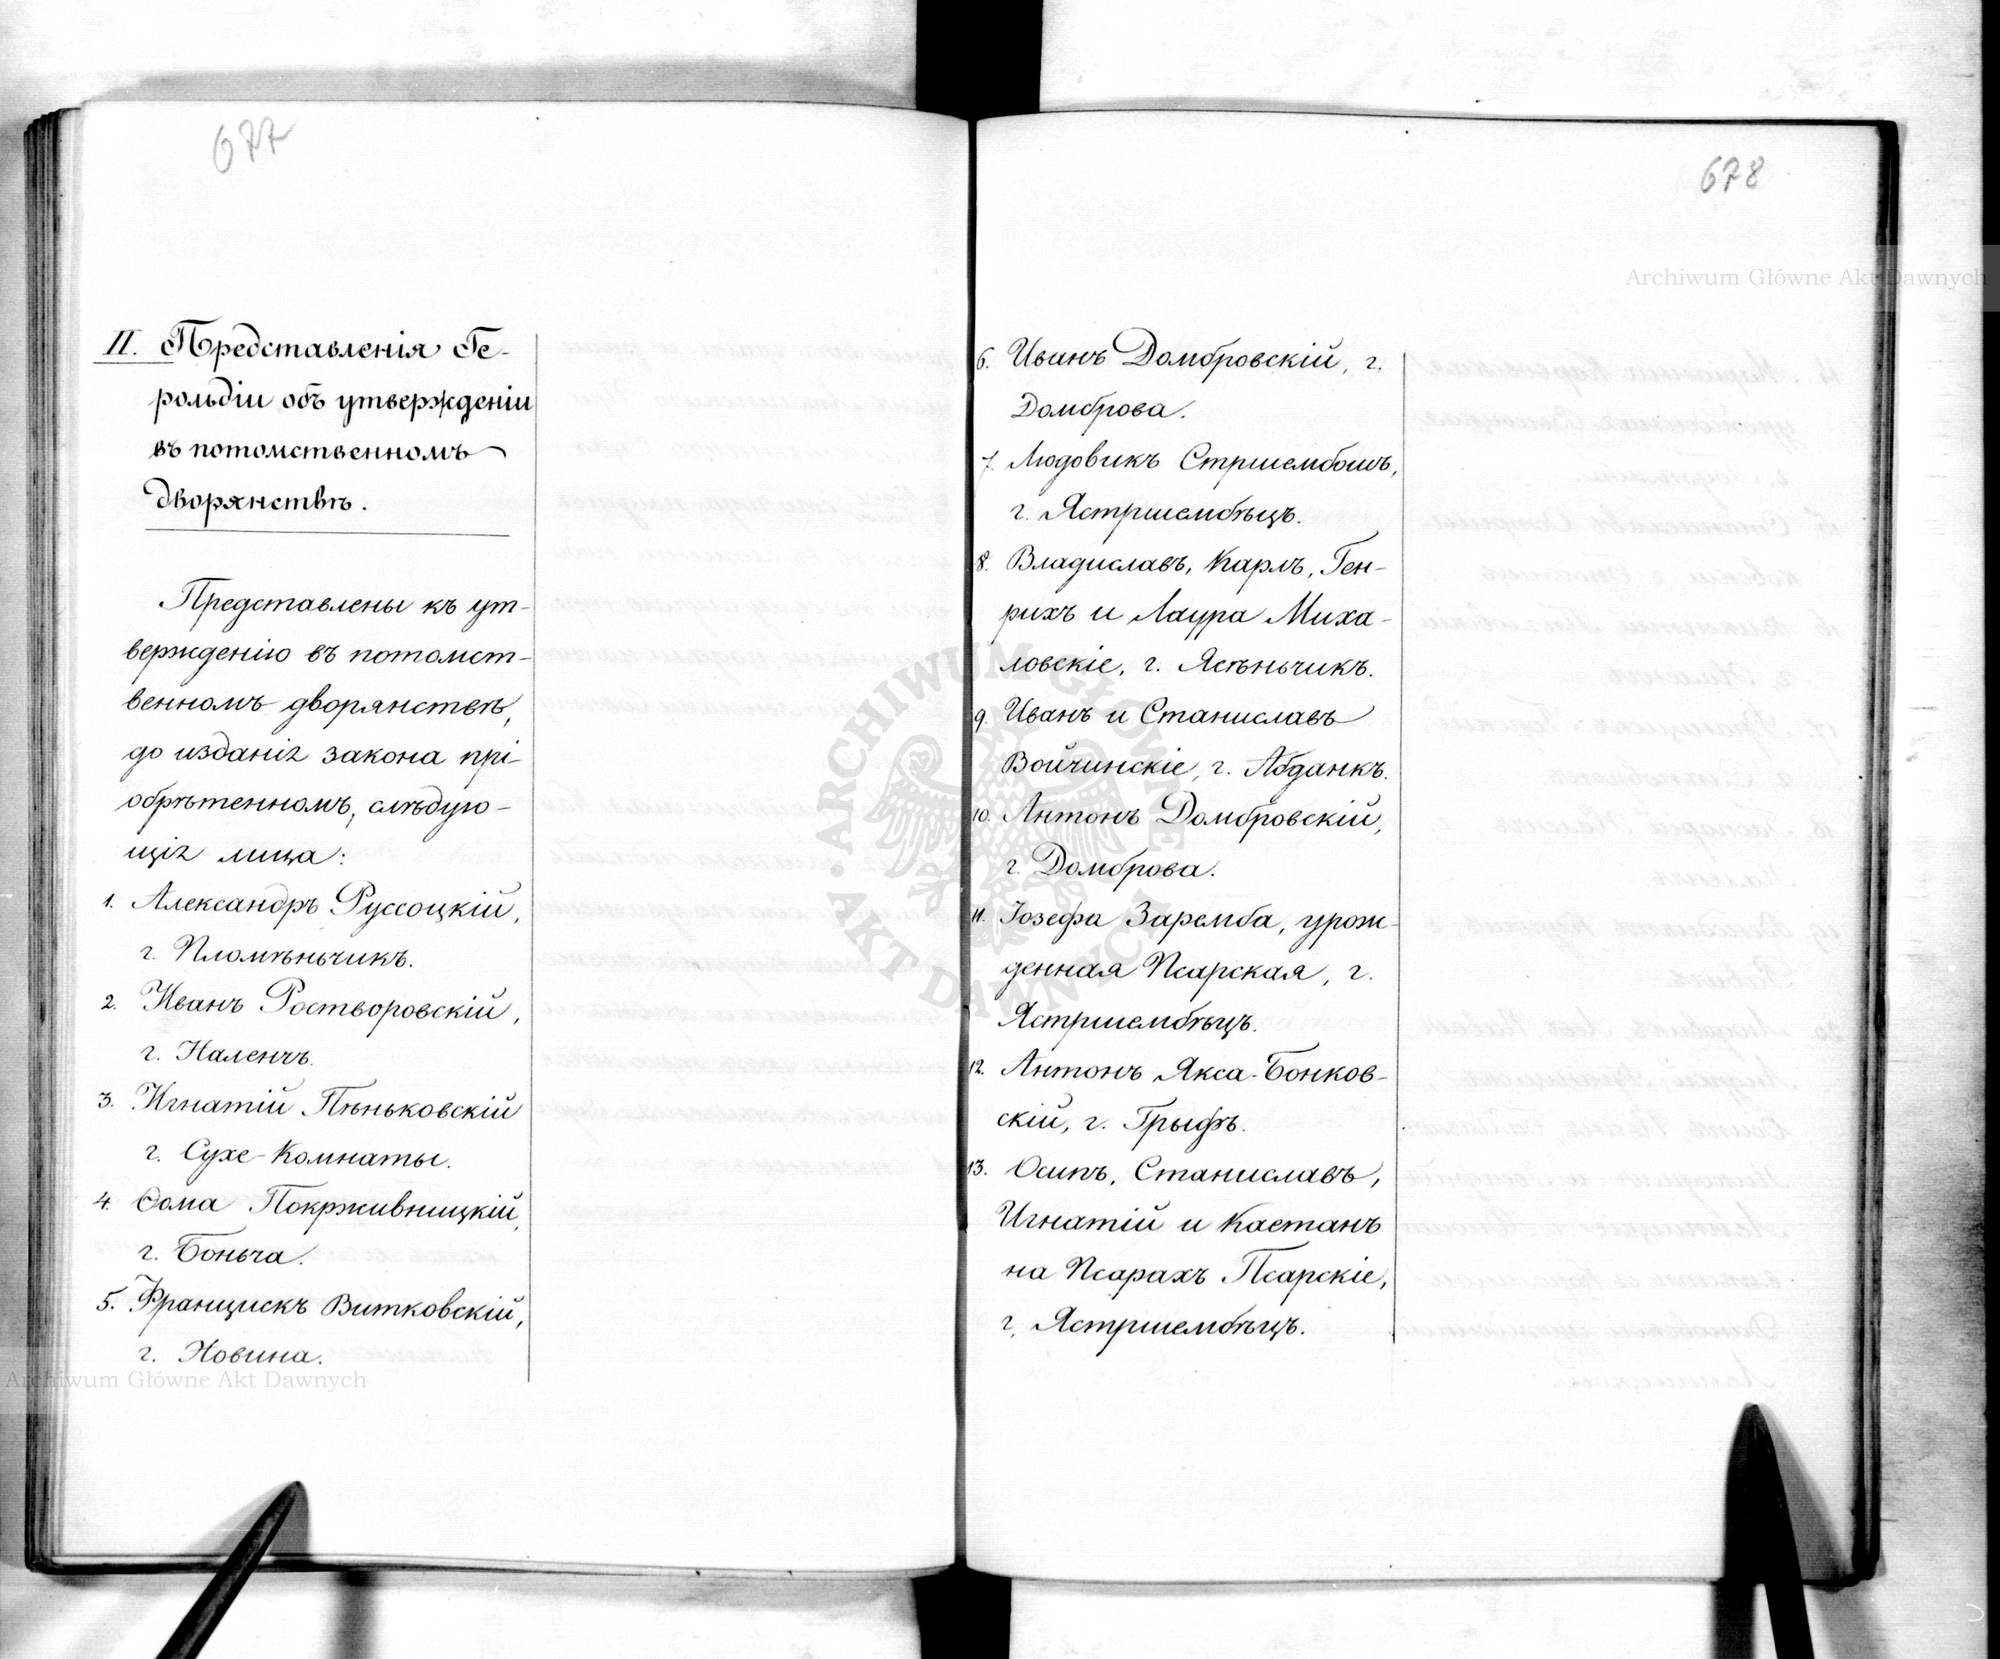 677
II. Представленія Ге-
рольдіи объ утвержденіи
въ потомственномъ
дворянствѣ.
Представлены къ ут-
вержденію въ потомст-
венномъ дворянствѣ,
до изданія закона прі-
обрѣтенномъ, слѣдую-
щія лица:
1. Александръ Руссоцкій,
г. Пломѣньчикъ.
2. Иванъ Ростворовскій,
г. Наленчъ.
3. Игнатій Пѣньковскій
г. Сухе-Комнаты.
4. Ѳома Покрживницкій,
г. Боньча.
5. Францискъ Витковскій,
г. Новина.
678
6. Иванъ Домбровскій, г.
Домброва.
7. Людовикъ Стршембошъ,
г. Ястршембѣцъ.
8. Владиславъ, Карлъ, Ген-
рихъ и Лаура Миха-
ловскіе, г. Ясѣньчикъ.
9. Иванъ и Станиславъ
Войчинскіе, г. Абданкъ.
10. Антонъ Домбровскій,
г. Домброва.
11. Іозефа Заремба, урож-
денная Псарская, г.
Ястршембѣцъ.
12. Антонъ Якса-Бонков-
скій, г. Грыфъ.
13. Осипъ, Станиславъ,
Игнатій и Каетанъ
на Псарахъ Псарскіе,
г. Ястршембѣцъ.
Archiwum Główne Akt Dawnych
ARCHIWUM GŁÓWNE AKT DAWNYCH
Archiwum Główne Akt Dawnych